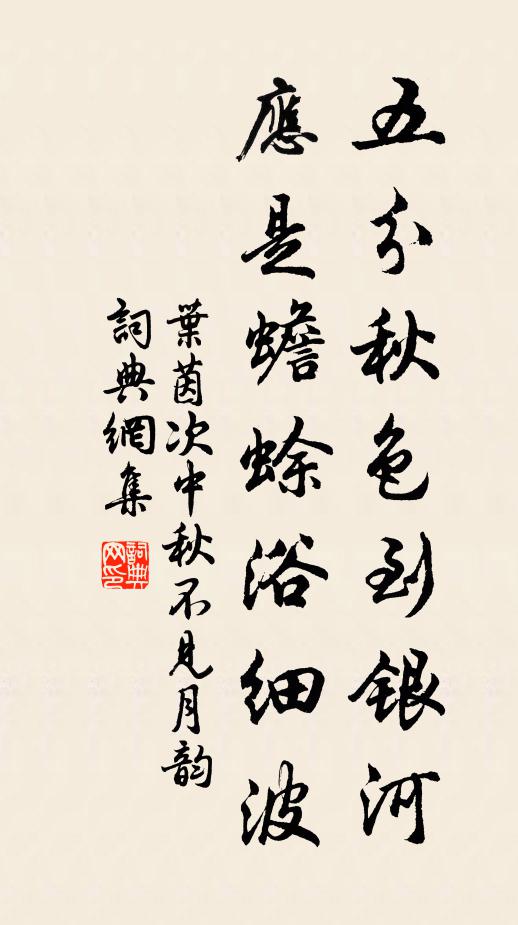 五分秋色到銀河
應是蟾蜍浴細波
葉茵次中秋不見月韵
詞典網集
詞典網印